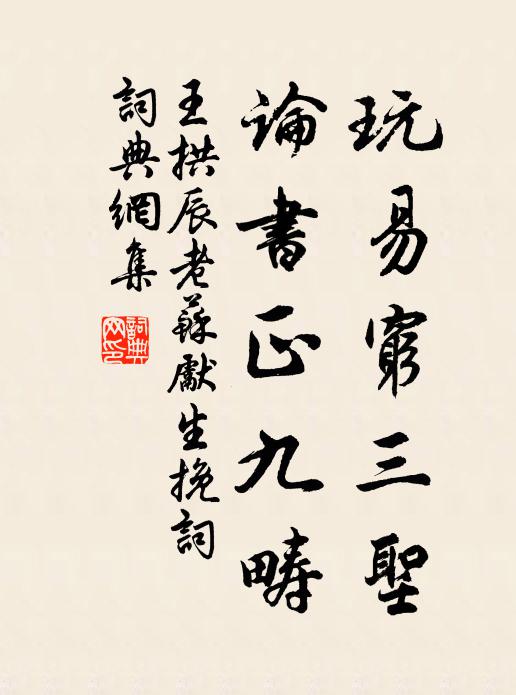 玩易窮三聖
論書正九疇
王拱辰老蘇獻生挽詞
詞典網集
詞典網印